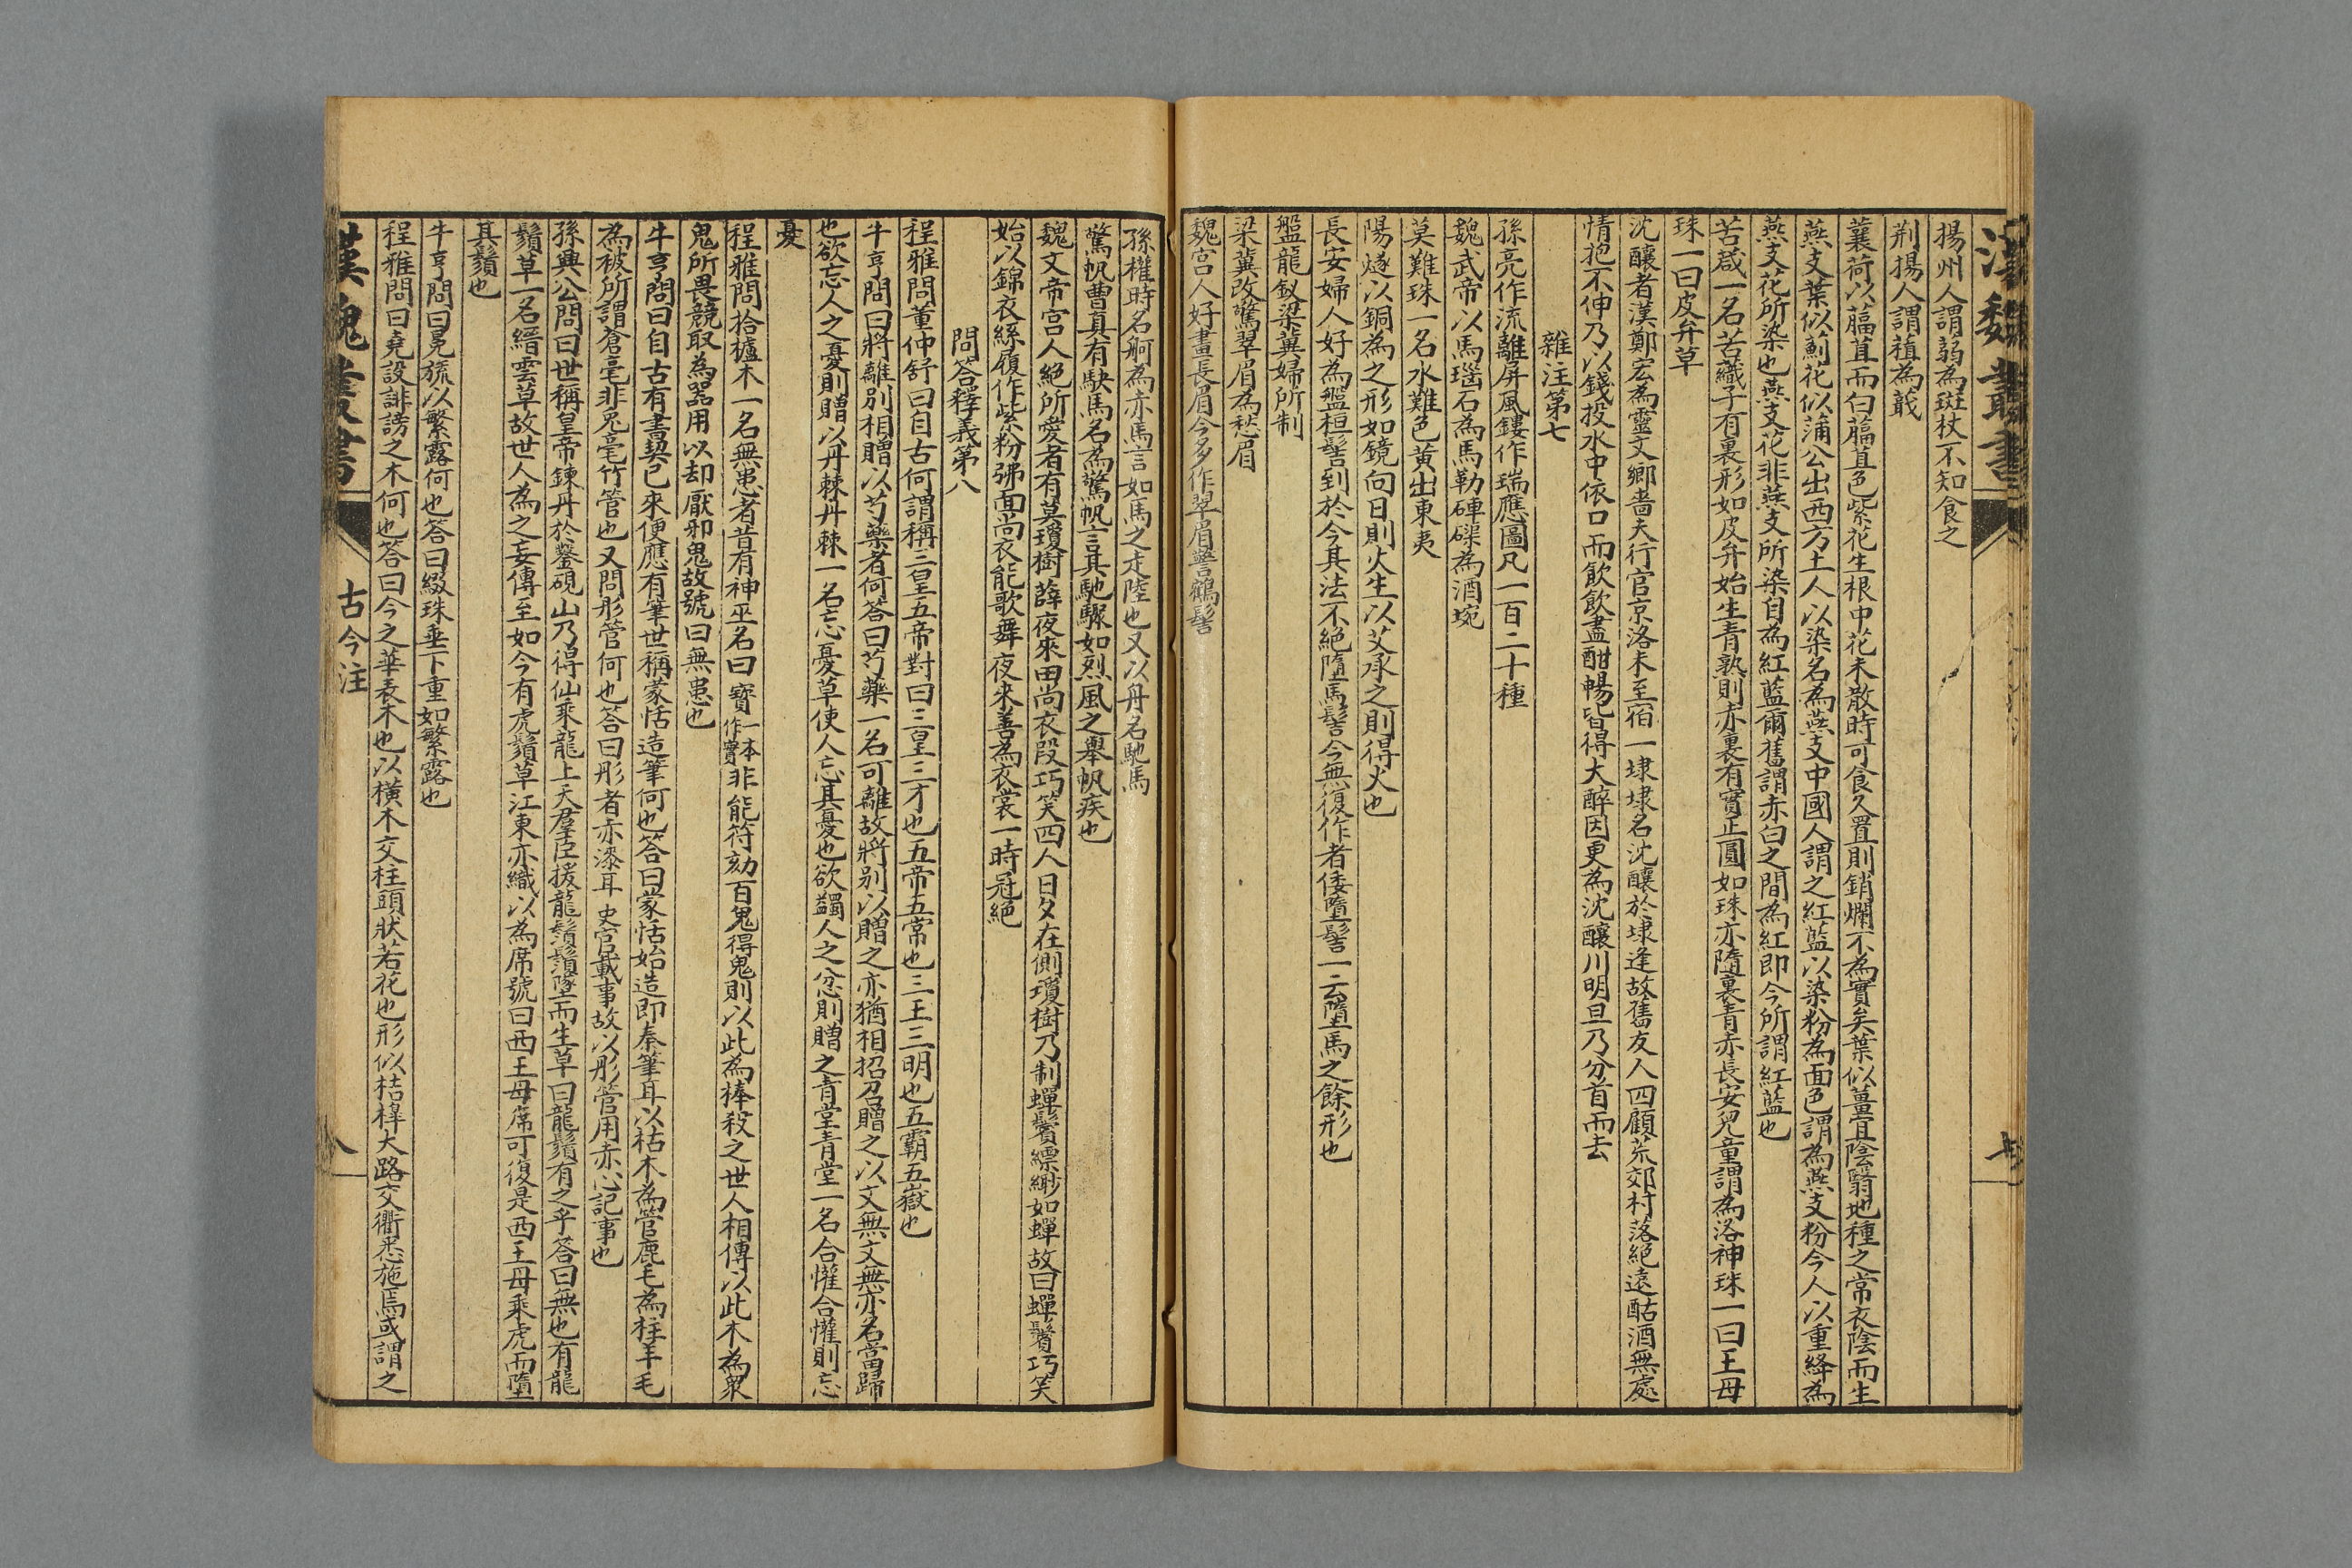 漢魏叢書
七
揚州人謂蒻為斑杖不知食之
荆揚人謂葅為蕺
蘘荷似䕲苴而白䕲苴色紫花生根中花未散時可食久置則銷爛不為實矣葉似薑宜陰翳地種之常衣陰而生
燕支葉似薊花似蒲公出西方土人以染名為燕支中國人謂之紅藍以染粉為面色謂為燕支粉今人以重絳為
燕支花所染也燕支花非燕支所染自為紅藍爾舊謂赤白之間為紅即今所謂紅藍也
苦葴一名苦蘵子有裏形如皮弁始生青熟則赤裏有實正圓如珠亦隨裏青赤長安兒童謂為洛神珠一曰王母
珠一曰皮弁草
沈釀者漢鄭宏為靈文鄉嗇夫行官京洛未至宿一埭埭名沈釀於埭逢故舊友人四顧荒郊村落絕遠酤酒無處
情抱不伸乃以錢投水中依口而飲飲盡酣暢皆得大醉因更為沈釀川明旦乃分首而去
雜注第七
孫亮作流離屏風鏤作瑞應圖凡一百二十種
魏武帝以馬瑙石為馬勒硨磲為酒埦
莫難珠一名水難色黃出東夷
陽燧以銅為之形如鏡向日則火生以艾承之則得火也
長安婦人好為盤桓髻到於今其法不絕隨馬髻今無復作者倭墮髻一云墮馬之餘形也
盤龍釵梁冀婦所制
梁冀改驚翠眉為愁眉
魏宮人好畫長眉今多作翠眉警鶴髻
孫權時名舸為赤馬言如馬之走陸也又以舟名馳馬
驚帆曹真有駃馬名為驚帆言其馳驟如烈風之舉帆疾也
魏文帝宮人絕所愛者有莫瓊樹薛夜來田尚衣段巧笑四人日夕在側瓊樹乃制蟬鬢縹緲如蟬故曰蟬鬢巧笑
始以錦衣絲履作紫粉拂面尚衣能歌舞夜來善為衣裳一時冠絕
問答釋義第八
程雅問董仲舒曰自古何謂稱三皇五帝對曰三皇三才也五帝五常也三王三明也五霸五嶽也
牛亨問曰將離別相贈以芍藥者何答曰芍藥一名可離故將別以贈之亦猶相招召贈之以文無文無亦名當歸
也欲忘人之憂則贈以丹棘丹棘一名忘憂草使人忘其憂也欲蠲人之忿則贈之青堂青堂一名合懽合懽則忘
憂
程雅問拾櫨木一名無患者昔有神巫名曰寶一本作實非能符劾百鬼得鬼則以此為棒殺之世人相傳以此木為衆
鬼所畏競取為器用以却厭邪鬼故號曰無患也
牛亨問曰自古有書契已來便應有筆世稱蒙恬造筆何也答曰蒙恬始造即秦筆耳以枯木為管鹿毛為柱羊毛
為被所謂蒼毫非兔毫竹管也又問彤管何也答曰彤者赤漆耳史官載事故以彤管用赤心記事也
孫興公問曰世稱皇帝鍊丹於鑿硯山乃得仙乘龍上天羣臣援龍鬚鬚墜而生草曰龍鬚有之乎答曰無也有龍
鬚草一名縉雲草故世人為之妄傳至如今有虎鬚草江東亦織以為席號曰西王母席可復是西王母乘虎而墮
其鬚也
牛亨問曰冕旒以繁露何也答曰綴珠垂下重如繁露也
程雅問曰堯設誹謗之木何也答曰今之華表木也以橫木交柱頭狀若花也形似桔槹大路交衢悉施焉或謂之
漢魏叢書
古今注
八